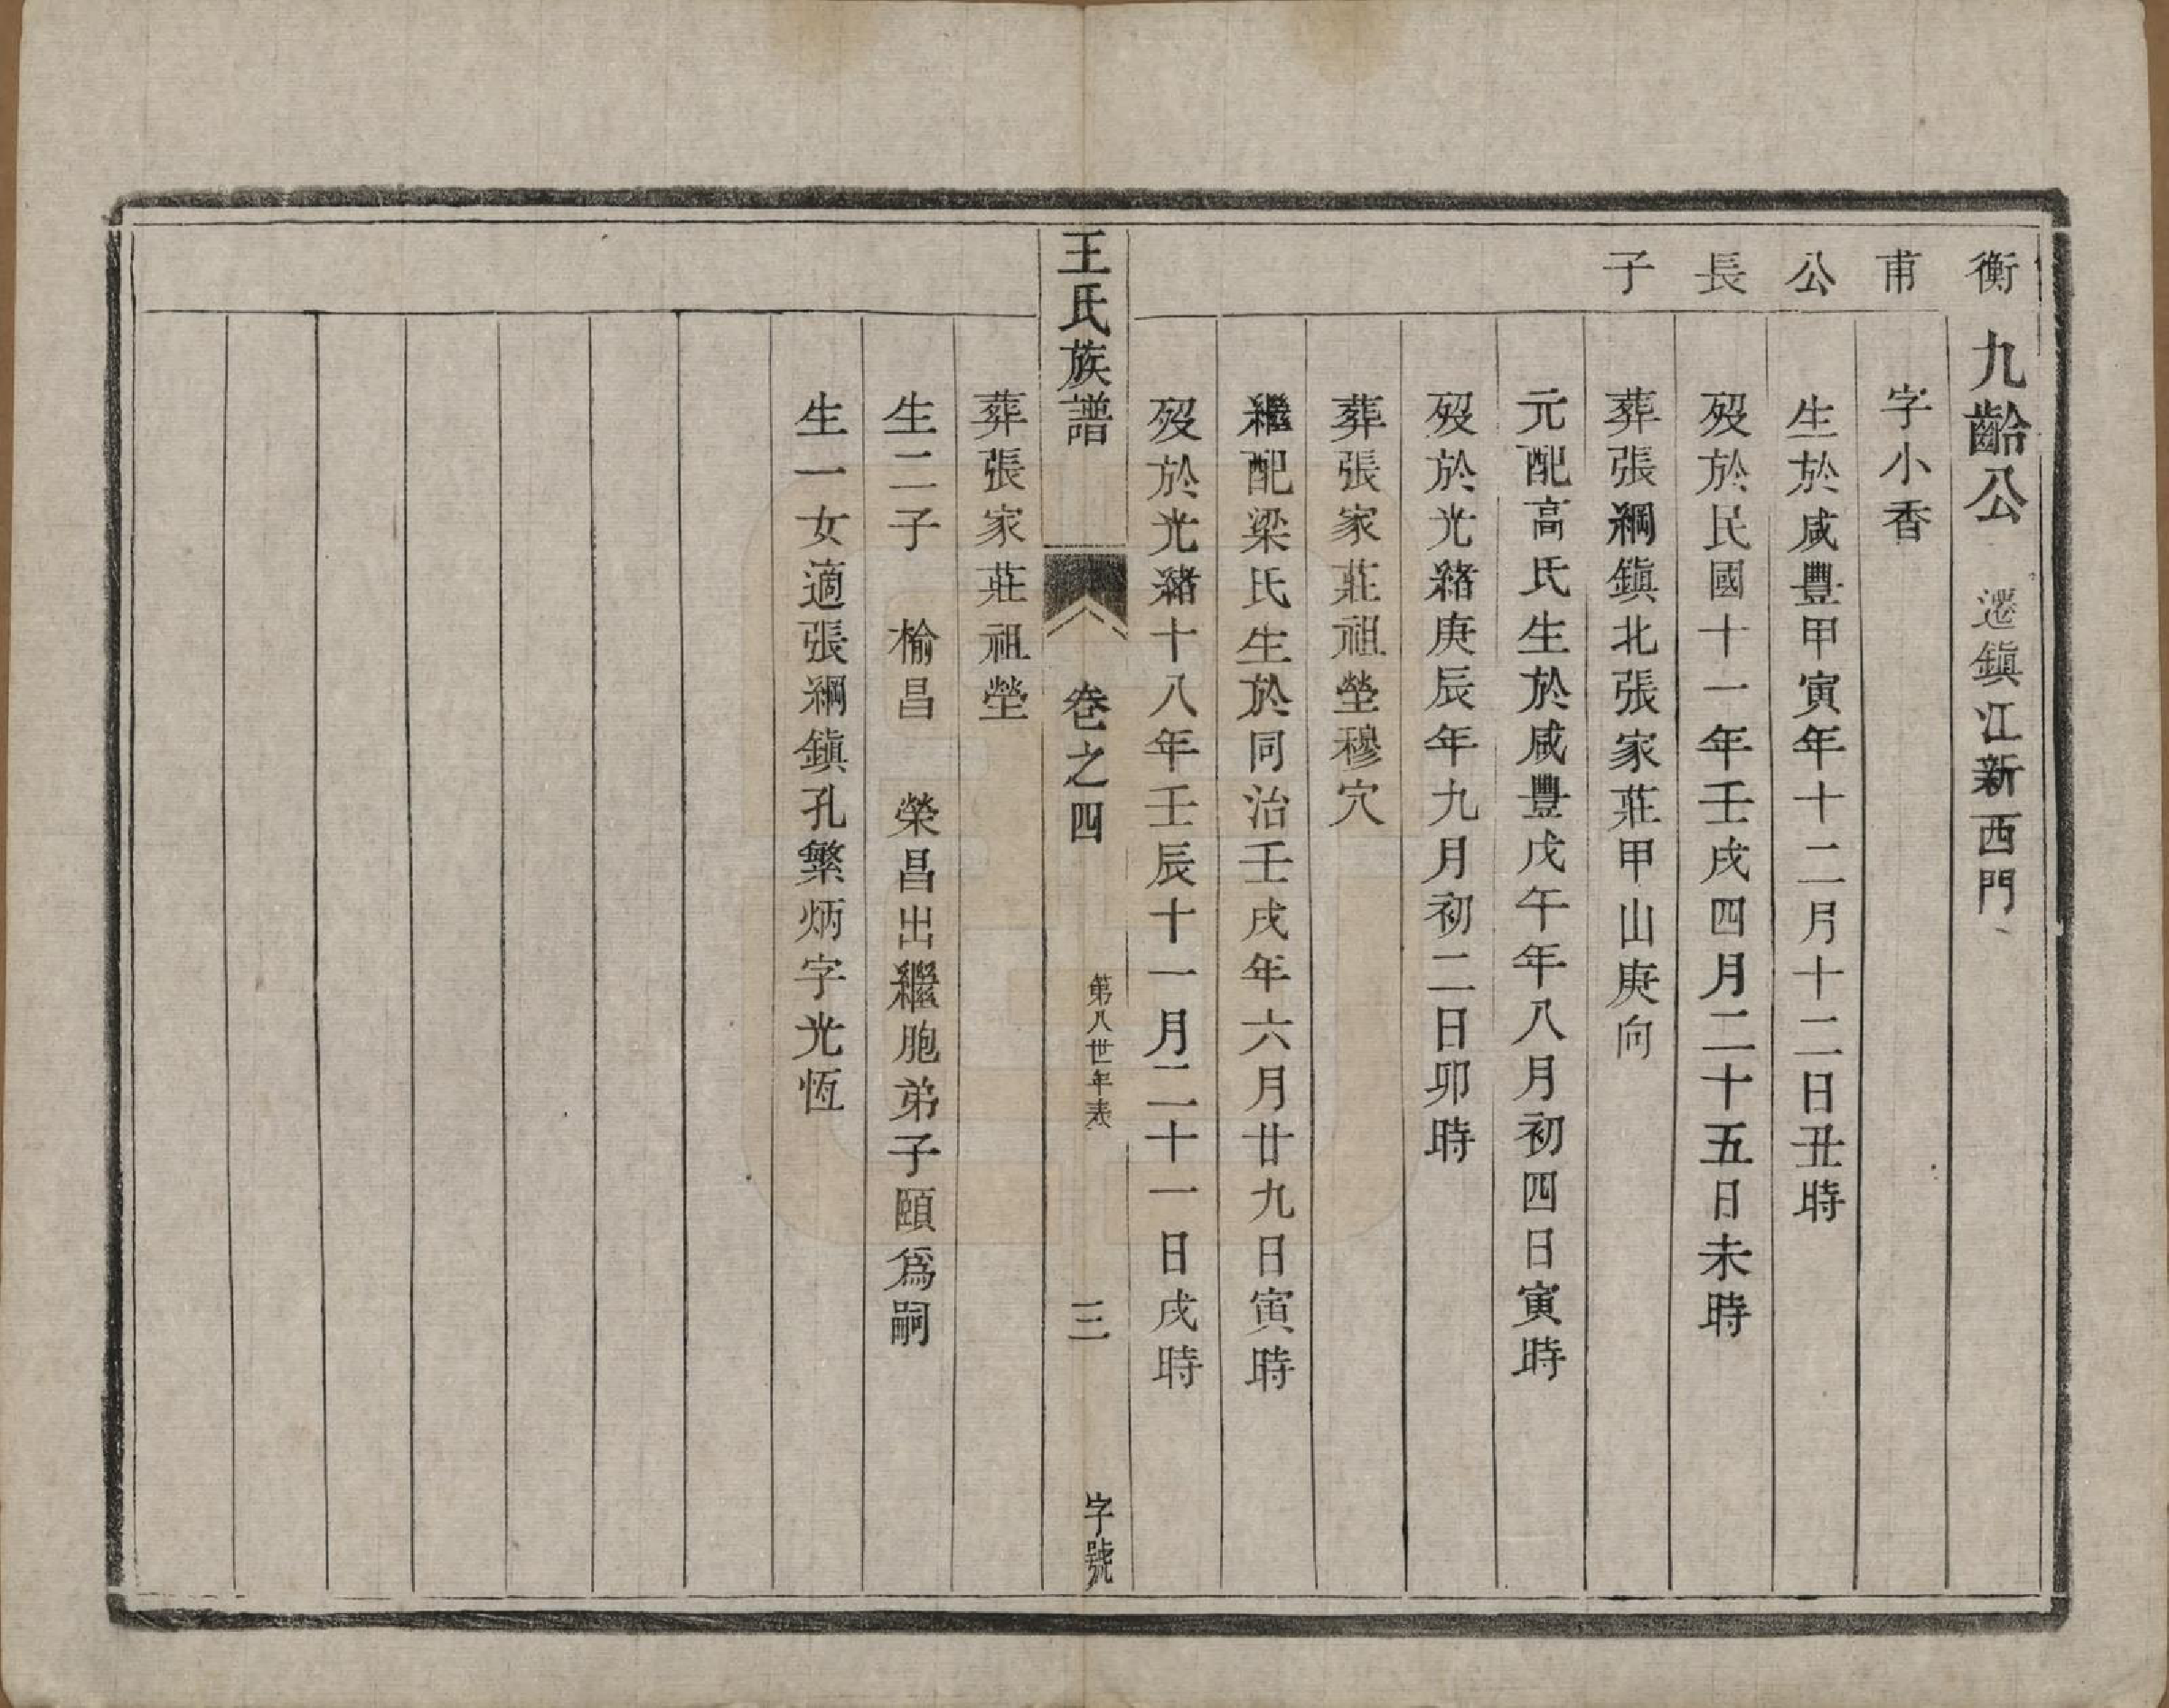 衡甫公長子
九齡公　遷鎮江新西門
字小香
生於咸豐甲寅年十二月十二日丑時
歿於民國十一年壬戌四月二十五日未時
葬張綱鎮北張家莊甲山庚向
元配高氏生於咸豐戊午年八月初四日寅時
歿於光緒庚辰年九月初二日卯時
葬張家莊祖塋穆穴
繼配梁氏生於同治壬戌年六月廿九日寅時
歿於光緒十八年壬辰十一月二十一日戌時
王氏族譜　卷之四　第八世年表　三　字號
葬張家莊祖塋
生二子　榆昌　榮昌出繼胞弟子頤爲嗣
生一女適張綱鎮孔繁炳字光恆